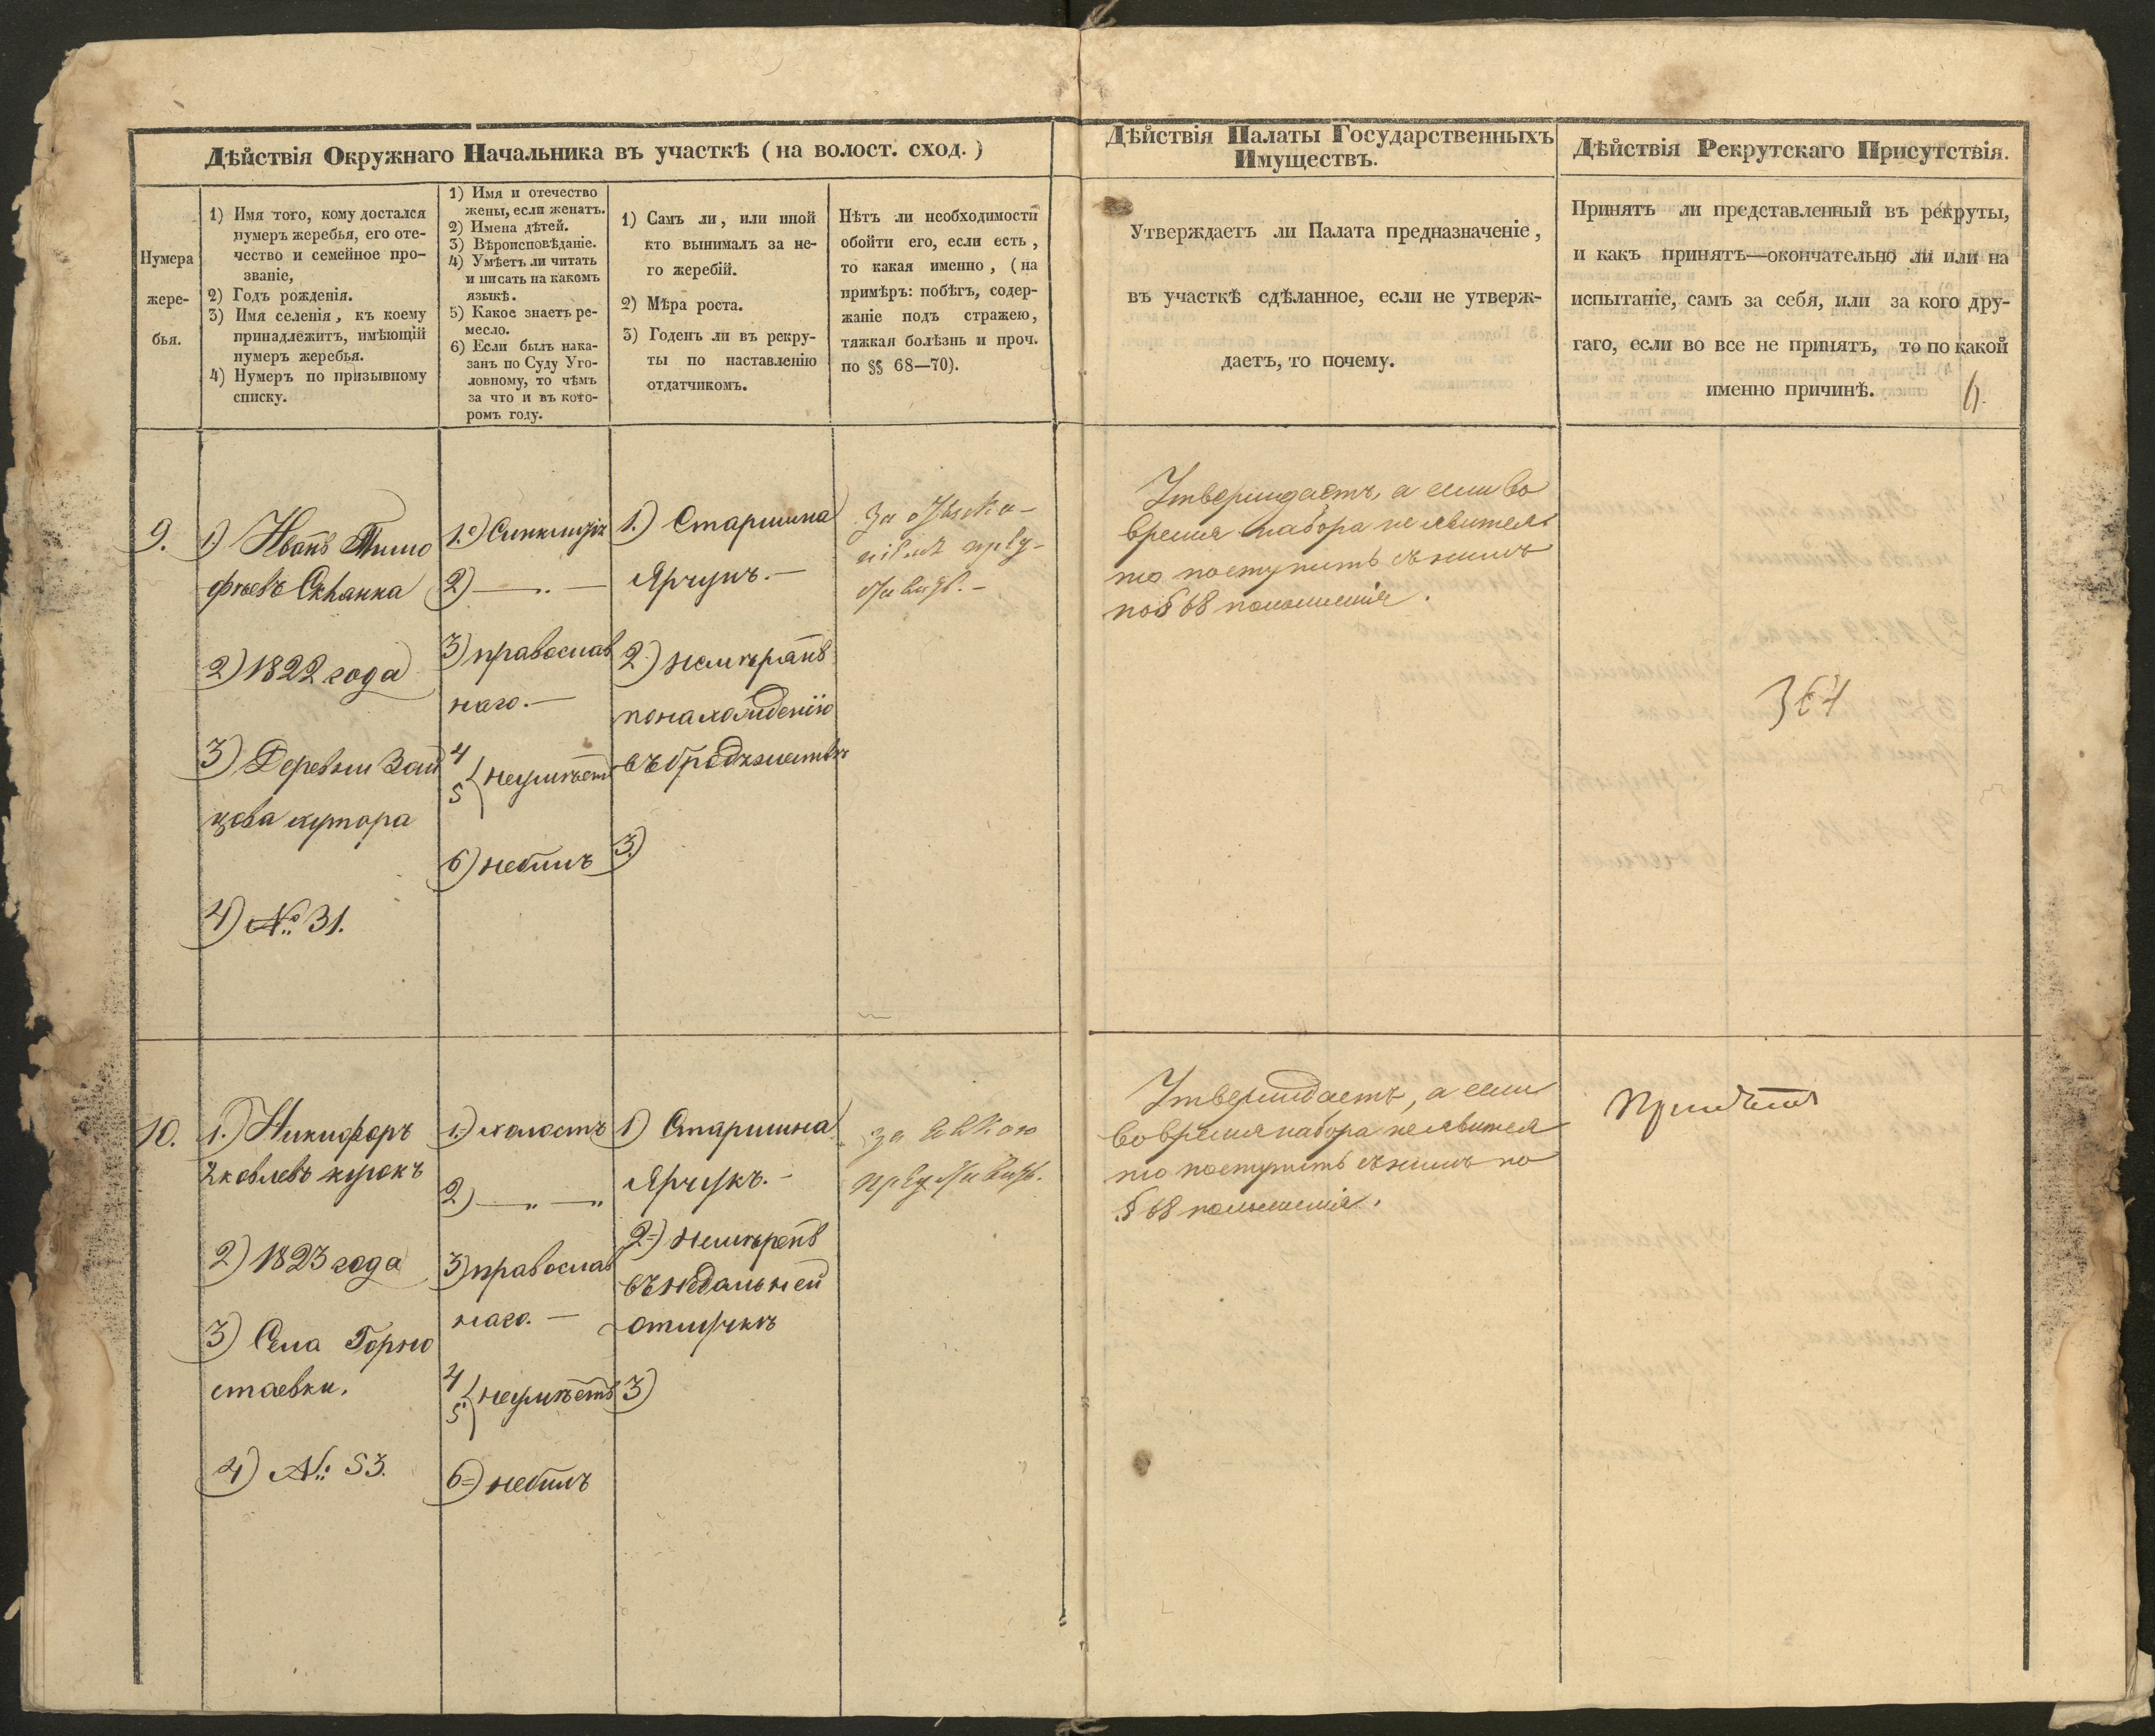 Дѣйствія Окружнаго Начальника въ участкѣ (на волост. сход.)
Нумера
жере-
бья.
1) Имя того, кому достался
нумеръ жеребья, его оте-
чество и семейное про-
званіе,
2) Годъ рожденія.
3) Имя селенія, къ коему
принадлежитъ, имѣющій
нумеръ жеребья.
4) Нумеръ по призывному
списку.
1) Имя и отечество
жены, если женатъ.
2) Имена дѣтей.
3) Вѣроисповѣданіе.
4) Умѣетъ ли читать
и писать на какомъ
языкѣ.
5) Какое знаетъ ре-
месло.
6) Если былъ нака-
занъ по Суду Уго-
ловному, то чѣмъ
за что и въ кото-
ромъ году.
1) Самъ ли, или иной
кто вынималъ за не-
го жеребій.
2) Мѣра роста.
3) Годенъ ли въ рекру-
ты по наставленію
отдатчикомъ.
Нѣтъ ли необходимости
обойти его, если есть,
то какая именно, (на
примѣръ: побѣгъ, содер-
жаніе подъ стражею,
тяжкая болѣзнь и проч.
по §§ 68—70).
Дѣйствія Палаты Государственныхъ
Имуществъ.
Утверждаетъ ли Палата предназначеніе,
въ участкѣ сдѣланное, если не утверж-
даетъ, то почему.
Дѣйствія Рекрутскаго Присутствія.
Принятъ ли представленный въ рекруты,
и какъ принятъ—окончательно ли или на
испытаніе, самъ за себя, или за кого дру-
гаго, если во все не принятъ, то по какой
именно причинѣ.
9.
1) Иванъ Тимо
фѣевъ
2) 1822 года
3) Деревни Зай
цова хутора
4) №: 31.
1.)
2) — . —
3) православ
наго. —
4
5 неумѣетъ
6) небылъ
1.) Старшина
Ярчукъ. —
2.) немѣранъ
понахожденію
въ бродяжествѣ
3)
За
Утверждаетъ, а если во
время набора не явится
то поступить съ нимъ
по § 68 положенія.
10.
1.) Никифоръ
Яковлевъ курокъ
2) 1823 года
3) Села Горно
стаевки.
4) №: 53.
1.) холостъ
2) — " — "
3) православ
наго. —
4
5 неумѣетъ
6=) небылъ
1) Старшина
Ярчукъ. —
2=) немѣренъ
въ недальней
отлучкѣ
3)
за
Утверждаетъ, а если
во время набора не явится
то поступить съ нимъ по
§ 68 положенія.